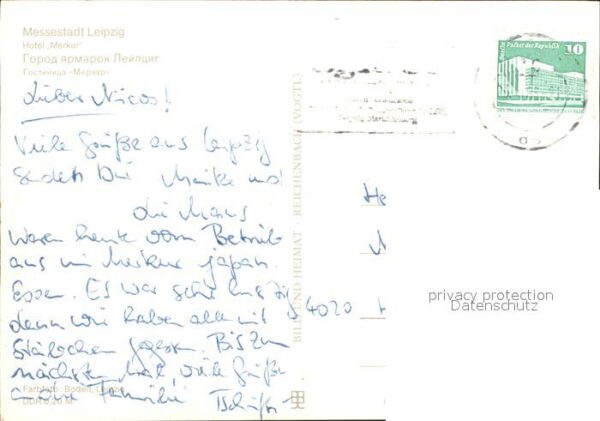 Messestadt Leipzig
Hotel „Merkur"
Город ярмарок Лейпциг
Гостиница «Меркур»
Lieber Nicos!
Viele Grüße aus Leipzig
senden Dir Maike und
die Maus
Waren heute vom Betrieb
aus im Merkur japan.
Essen. Es war sehr lustig
denn wir haben alle mit
Stäbchen gegessen. Bis zum
nächsten Mal, viele Grüße
an die Familie
Farbfoto: Boden, Leipzig
DDR 0,20 M
BILD UND HEIMAT · REICHENBACH (VOGTL)
Berlin, Palast der Republik
10
4020
privacy protection
Datenschutz